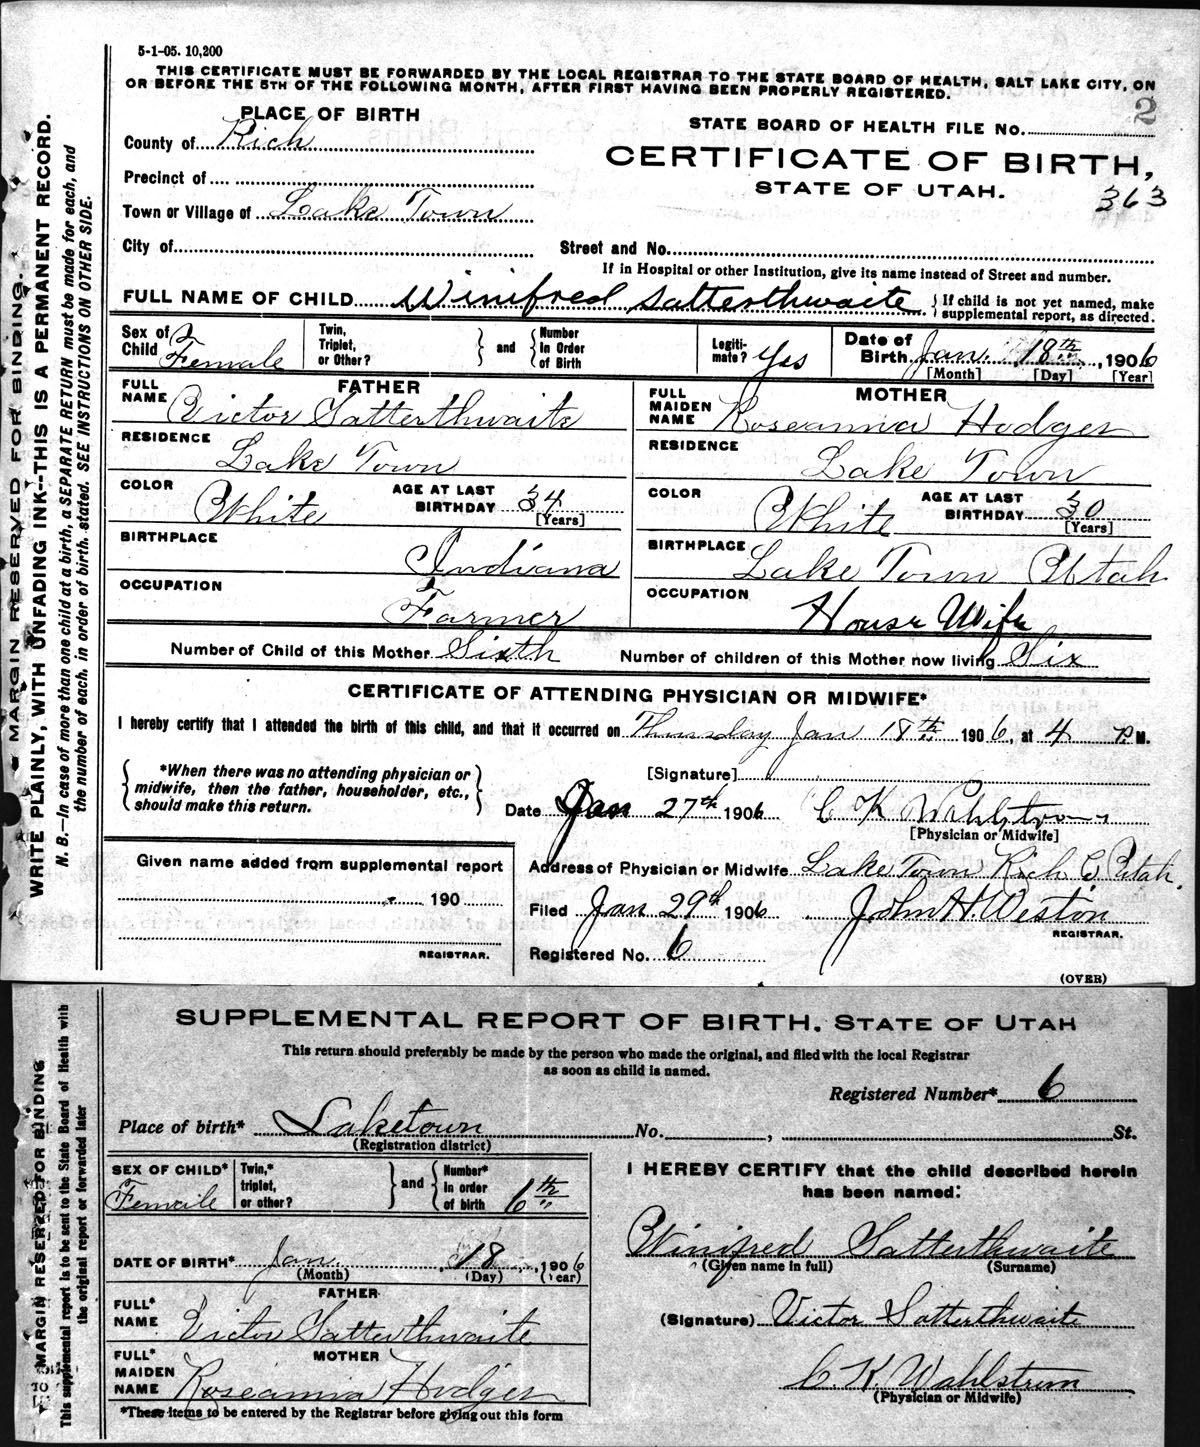 5-1-05. 10,200
THIS CERTIFICATE MUST BE FORWARDED BY THE LOCAL REGISTRAR TO THE STATE BOARD OF HEALTH, SALT LAKE CITY, ON
OR BEFORE THE 5TH OF THE FOLLOWING MONTH, AFTER FIRST HAVING BEEN PROPERLY REGISTERED.
2
PLACE OF BIRTH
STATE BOARD OF HEALTH FILE NO.
County of Rich
CERTIFICATE OF BIRTH,
STATE OF UTAH.
363
Precinct of
Town or Village of Lake Town
City of
Street and No.
If in Hospital or other Institution, give its name instead of Street and number.
FULL NAME OF CHILD Winifred Satterthwaite
If child is not yet named, make
supplemental report, as directed.
Sex of Child Female
Twin, Triplet, or Other?
and
Number In Order of Birth
Legiti-mate? Yes
Date of Birth Jan. 18th, 1906
[Month] [Day] [Year]
FATHER
FULL NAME Victor Satterthwaite
RESIDENCE
Lake Town
COLOR White
AGE AT LAST BIRTHDAY 34
[Years]
BIRTHPLACE
Indiana
OCCUPATION
Farmer
MOTHER
FULL MAIDEN NAME Roseannia Hodges
RESIDENCE
Lake Town
COLOR White
AGE AT LAST BIRTHDAY 30
[Years]
BIRTHPLACE Lake Town Utah
OCCUPATION
House Wife
Number of Child of this Mother Sixth Number of children of this Mother now living Six
CERTIFICATE OF ATTENDING PHYSICIAN OR MIDWIFE*
I hereby certify that I attended the birth of this child, and that it occurred on Thursday Jan 18th 1906, at 4 P.M.
*When there was no attending physician or
midwife, then the father, householder, etc.,
should make this return.
[Signature]
Date Jan 27th 1906 C K Wahlstrom
[Physician or Midwife]
Given name added from supplemental report
190
REGISTRAR.
Address of Physician or Midwife Lake Town Rich Co Utah.
Filed Jan 29th 1906 John H. Weston
REGISTRAR.
Registered No. 6
(OVER)
MARGIN RESERVED FOR BINDING.
WRITE PLAINLY, WITH UNFADING INK--THIS IS A PERMANENT RECORD.
N. B.—In case of more than one child at a birth, a SEPARATE RETURN must be made for each, and
the number of each, in order of birth, stated. SEE INSTRUCTIONS ON OTHER SIDE.
SUPPLEMENTAL REPORT OF BIRTH. STATE OF UTAH
This return should preferably be made by the person who made the original, and filed with the local Registrar
as soon as child is named.
Registered Number* 6
Place of birth* Laketown No. , St.
(Registration district)
SEX OF CHILD* Female
Twin,* triplet, or other?
and
Number* In order of birth 6th
DATE OF BIRTH* Jan 18, 1906
(Month) (Day) (Year)
FATHER
FULL* NAME Victor Satterthwaite
MOTHER
FULL* MAIDEN NAME Roseannia Hodges
*These items to be entered by the Registrar before giving out this form
I HEREBY CERTIFY that the child described herein
has been named:
Winifred Satterthwaite
(Given name in full) (Surname)
(Signature) Victor Satterthwaite
C. K. Wahlstrom
(Physician or Midwife)
MARGIN RESERVED FOR BINDING
This supplemental report is to be sent to the State Board of Health with
the original report or forwarded later